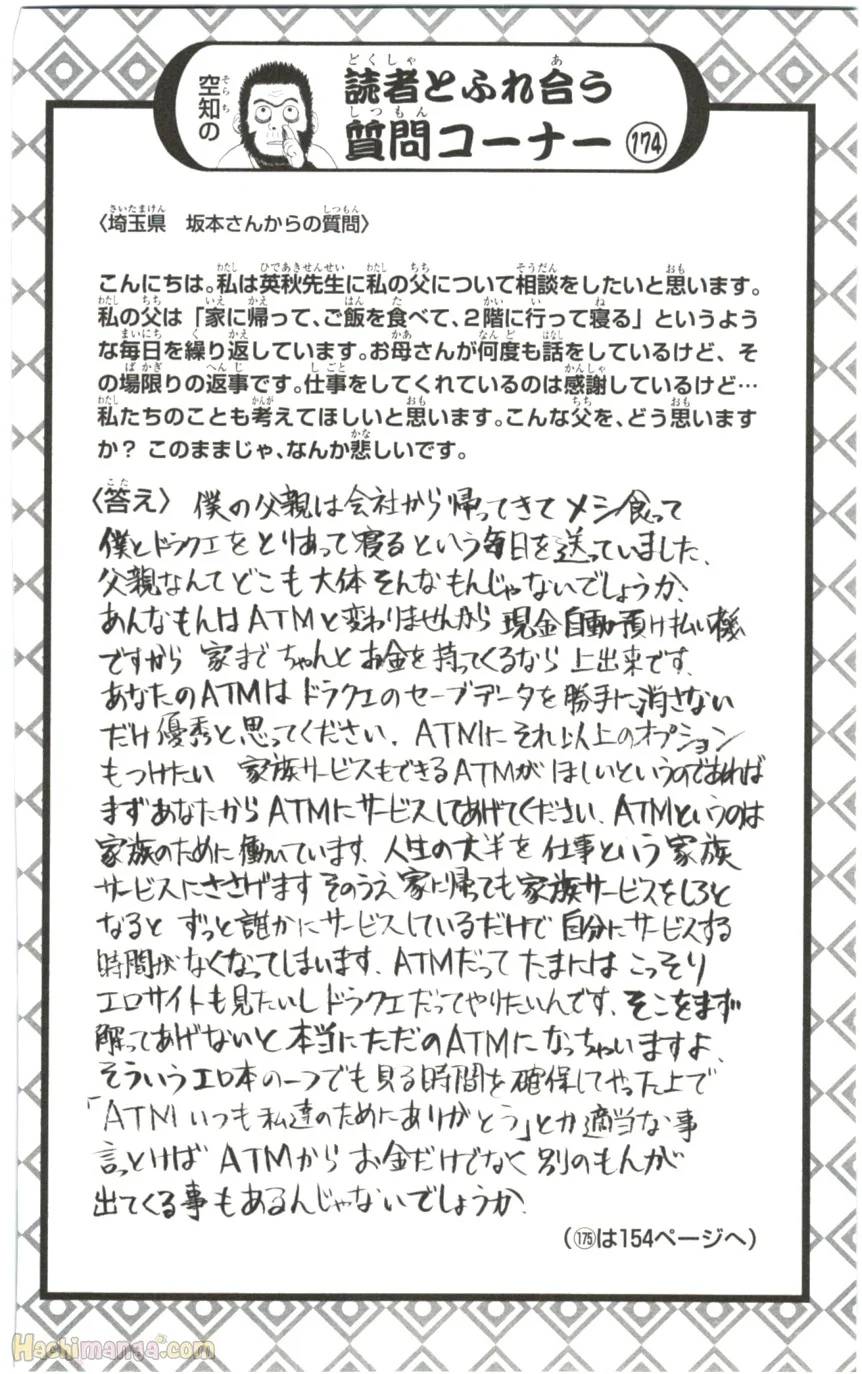 空知の
読者とふれ合う
質問コーナー 174
〈埼玉県 坂本さんからの質問〉
こんにちは。私は英秋先生に私の父について相談をしたいと思います。
私の父は「家に帰って、ご飯を食べて、2階に行って寝る」というよう
な毎日を繰り返しています。お母さんが何度も話をしているけど、そ
の場限りの返事です。仕事をしてくれているのは感謝しているけど…
私たちのことも考えてほしいと思います。こんな父を、どう思います
か? このままじゃ、なんか悲しいです。
〈答え〉 僕の父親は会社から帰ってきてメシ食って
僕とドラクエをとりあって寝るという毎日を送っていました。
父親なんてどこも大体そんなもんじゃないでしょうか、
あんなもんはATMと変わりませんから 現金自動預け払い機
ですから 家までちゃんとお金を持ってくるなら上出来です。
あなたのATMはドラクエのセーブデータを勝手に消さない
だけ優秀と思ってください。ATMにそれ以上のオプション
もつけたい 家族サービスもできるATMがほしいというのであれば
まずあなたからATMにサービスしてあげてください。ATMというのは
家族のために働いています。人生の大半を仕事という家族
サービスにささげます そのうえ家に帰っても家族サービスをしろと
なると ずっと誰かにサービスしているだけで自分にサービスする
時間がなくなってしまいます。ATMだって たまには こっそり
エロサイトも見たいしドラクエだってやりたいんです。そこをまず
解ってあげないと本当にただのATMになっちゃいますよ。
そういうエロ本の一つでも見る時間を確保してやった上で
「ATMいつも私達のためにありがとう」とか適当な事
言っとけば ATMから お金だけでなく別のもんが
出てくる事もあるんじゃないでしょうか。
(175は154ページへ)
Hachimanga.com